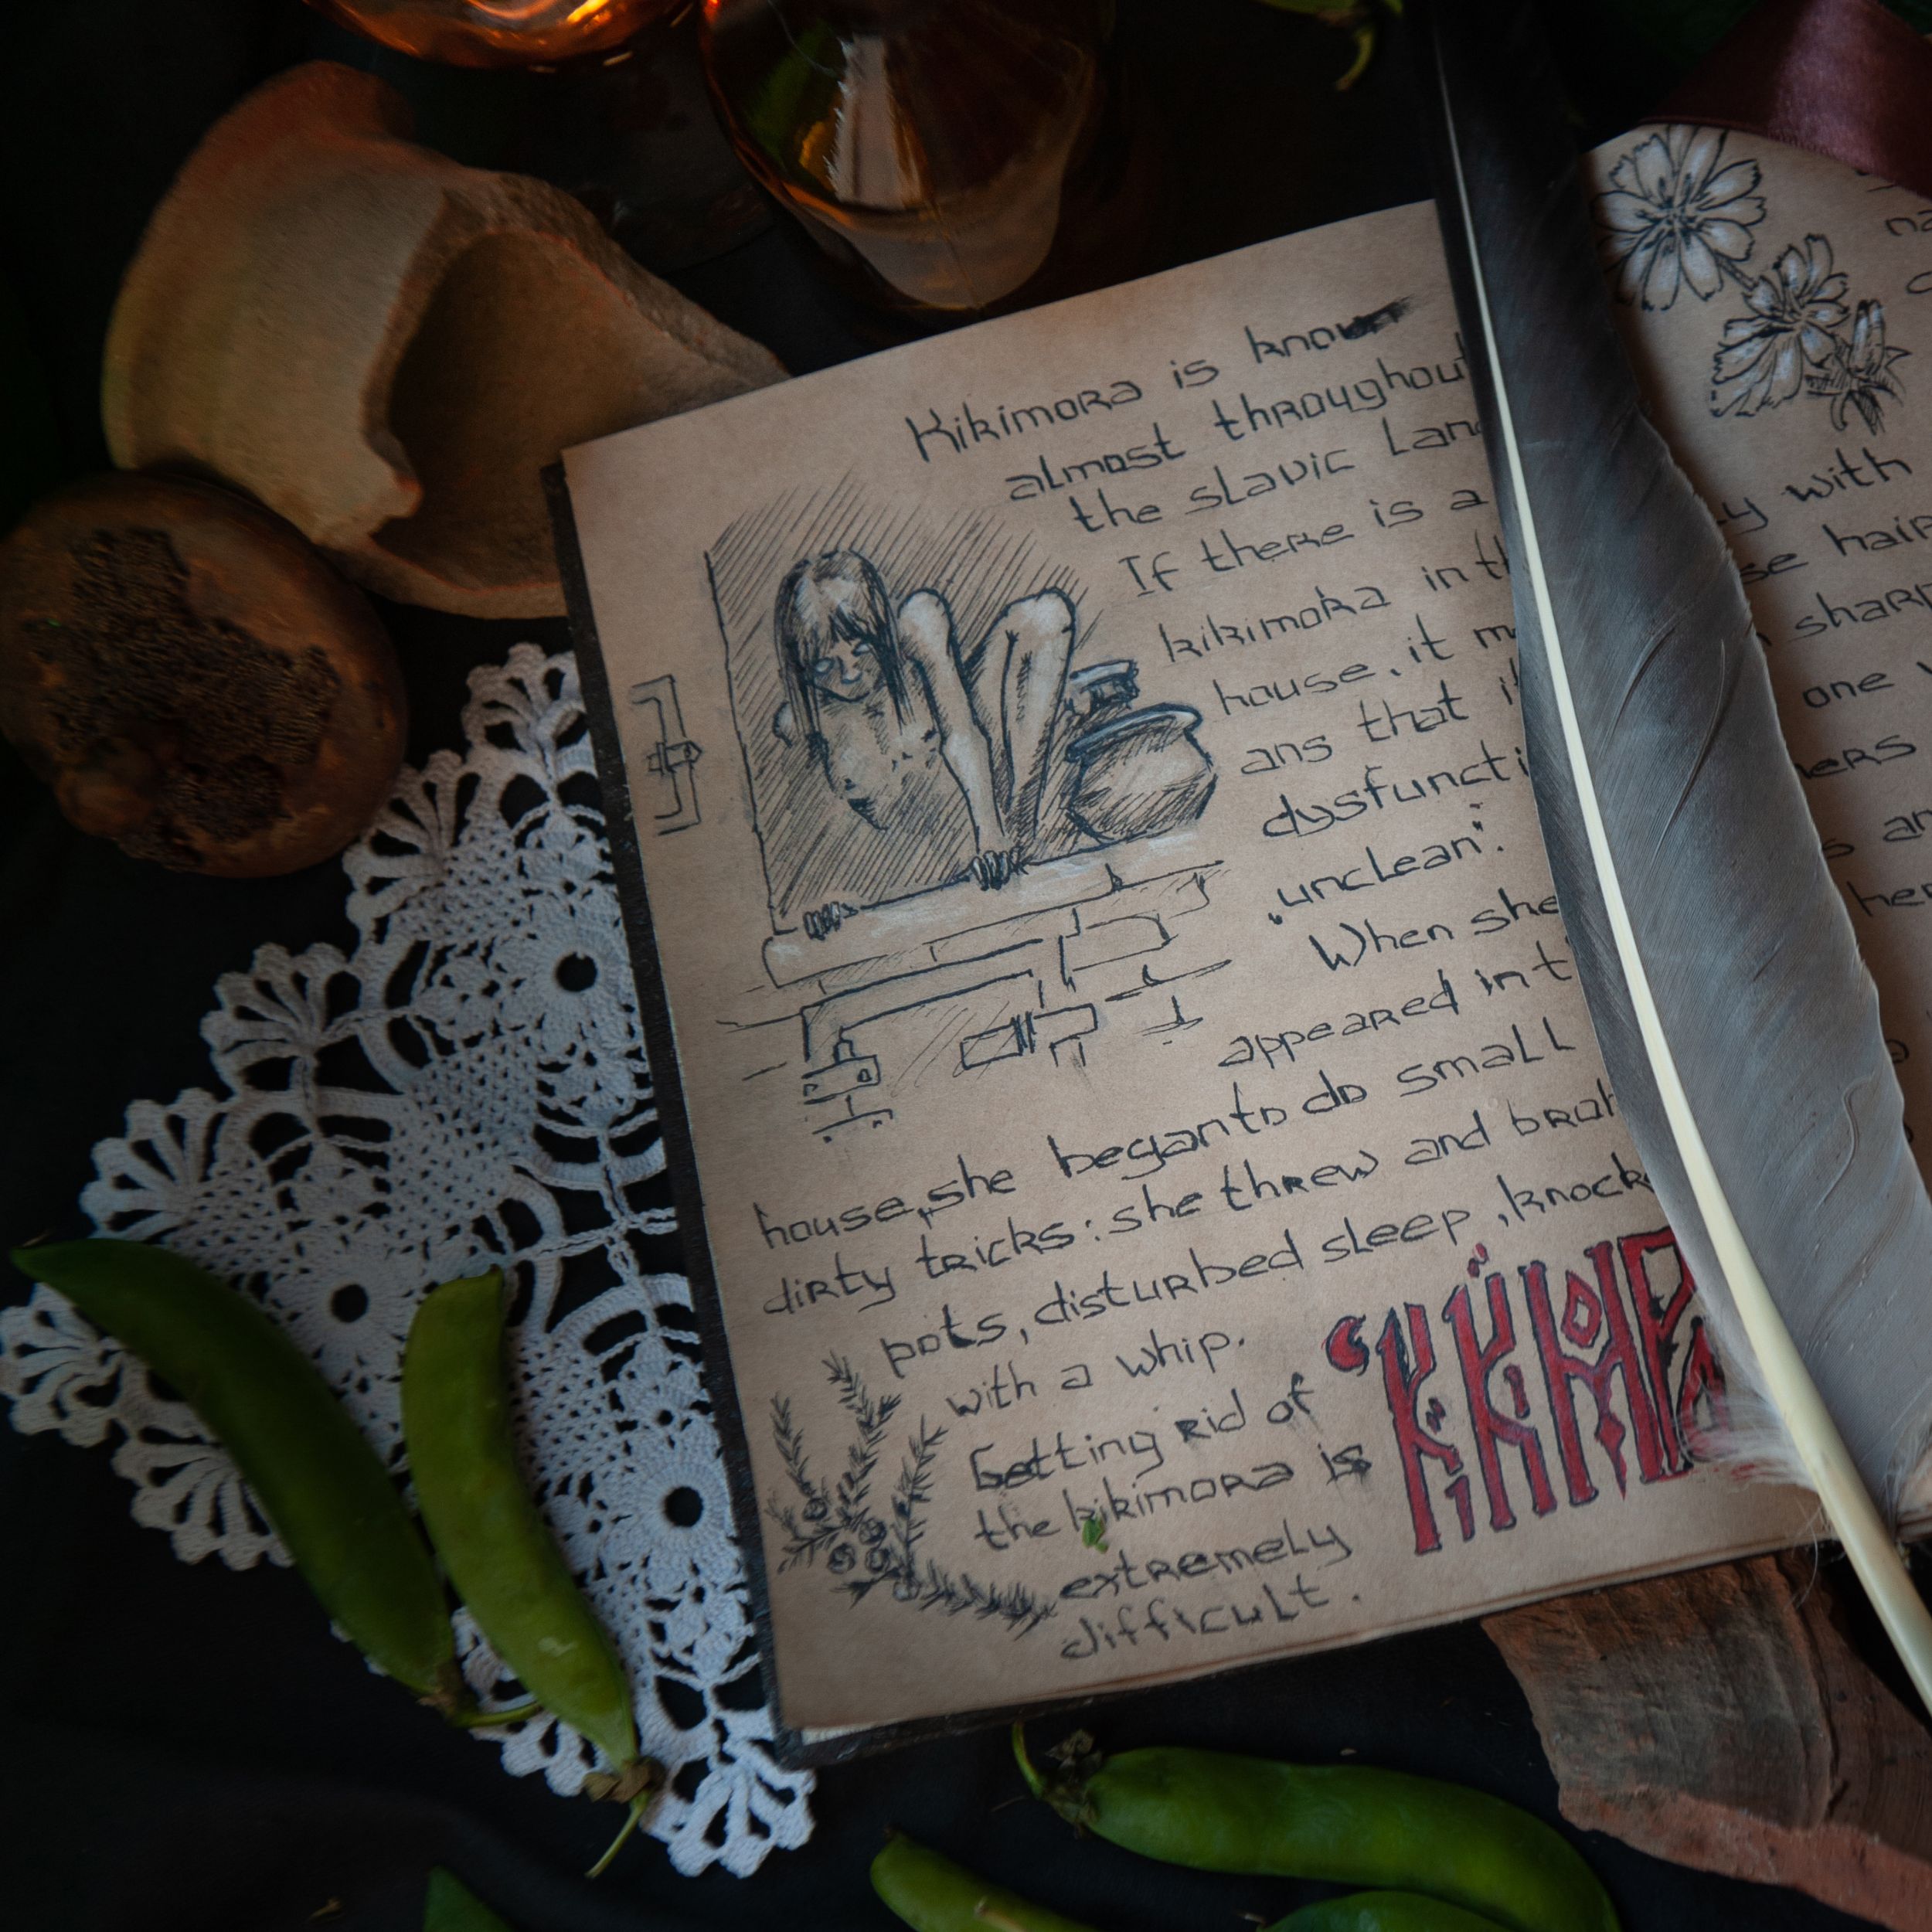 Kikimora is known
almost throughout
the slavic Lan
If there is a
kikimora in th
house, it m
ans that i
dysfuncti
"unclean".
When she
appeared in t
house, she began to do small
dirty tricks: she threw and brok
pots, disturbed sleep, knock
with a whip.
Getting rid of
the kikimora is
extremely
difficult.
КИКИМОР
na
y with
se hair
sharp
one
ers
s an
her